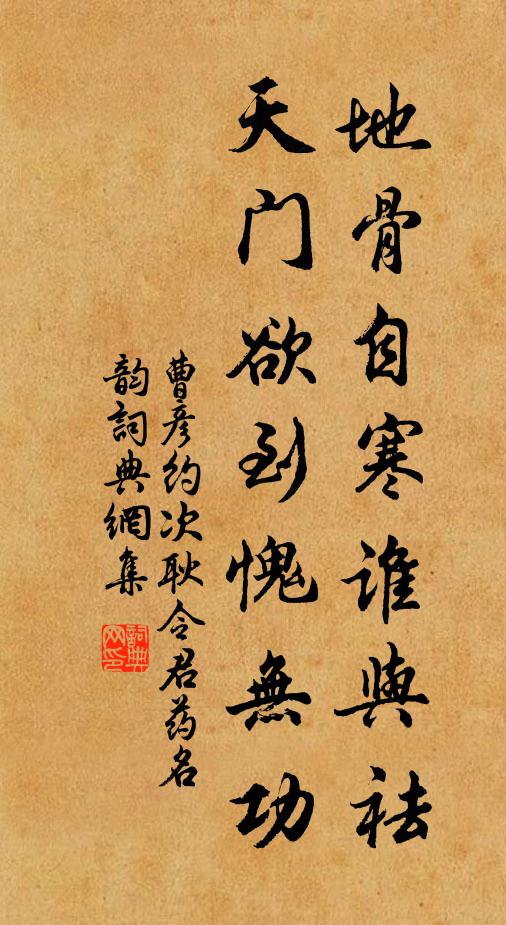 地骨自寒谁與祛
天门欲到愧無功
曹彦约次耿令君药名
韵詞典網集
詞典网印